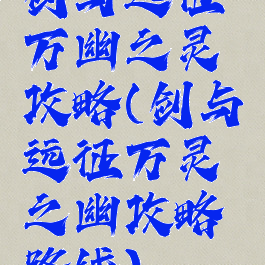 剑与远征
万幽之灵
攻略(剑与
远征万灵
之幽攻略
路线)